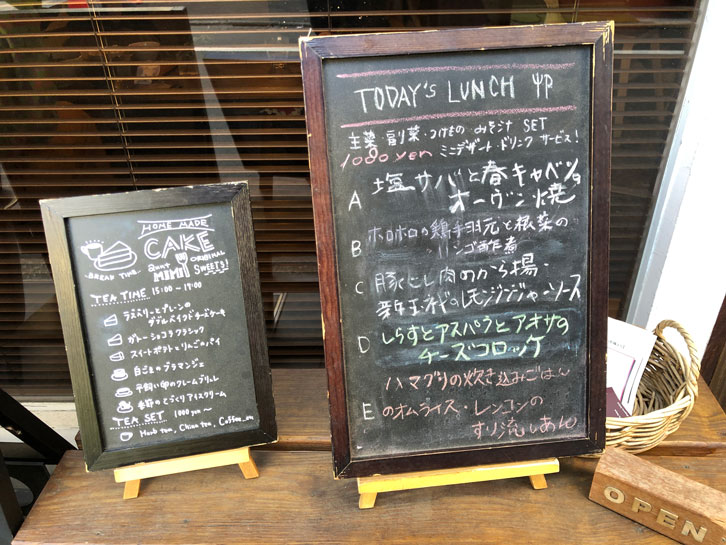 HOME MADE
CAKE
BREAD TIME
aunt
MIMI
ORIGINAL
SWEETS!
TEA TIME 15:00 - 17:00
ラズベリーとプレーンの
ダブルベイクドチーズケーキ
ガトーショコラクラシック
スイートポテトとりんごのパイ
白ごまのブラマンジェ
平飼い卵のクレームブリュレ
季節の手づくりアイスクリーム
TEA SET 1000 yen ~
Herb tea, China tea, Coffee
TODAY's LUNCH
主菜・副菜・つけもの みそ汁 SET
1080 yen ミニデザート・ドリンク サービス!
A 塩サバと春キャベツの
オーヴン焼
B ホロホロの鶏手羽元と根菜の
リンゴ酢煮
C 豚こし肉のから揚
新玉ネギのレモンジンジャーソース
D しらすとアスパラとアオサの
チーズコロッケ
E ハマグリの炊き込みごはん
のオムライス・レンコンの
すり流しあん
OPEN